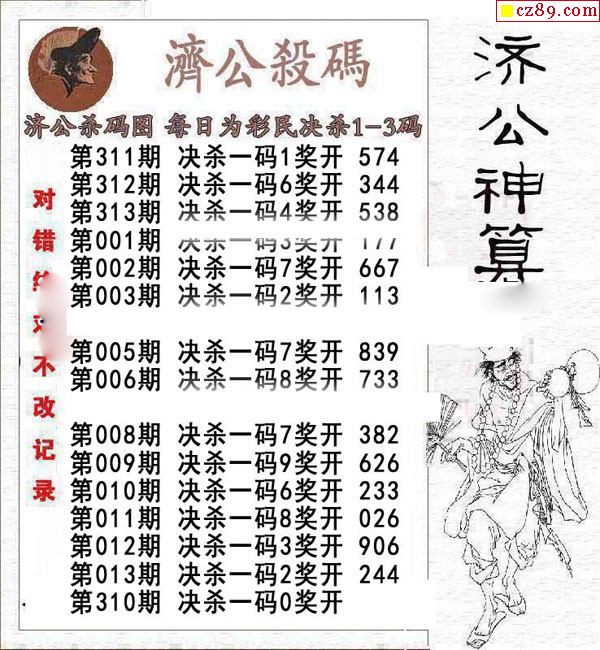 cz89.com
濟公殺碼
济公杀码图 每日为彩民决杀1-3码
第311期 决杀一码1奖开 574
第312期 决杀一码6奖开 344
第313期 决杀一码4奖开 538
第001期 决杀一码3奖开 177
第002期 决杀一码7奖开 667
第003期 决杀一码2奖开 113
第005期 决杀一码7奖开 839
第006期 决杀一码8奖开 733
第008期 决杀一码7奖开 382
第009期 决杀一码9奖开 626
第010期 决杀一码6奖开 233
第011期 决杀一码8奖开 026
第012期 决杀一码3奖开 906
第013期 决杀一码2奖开 244
第310期 决杀一码0奖开
对错 不改记录
济公神算